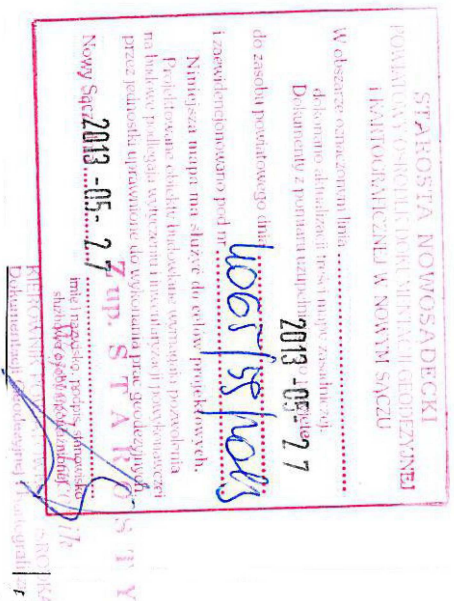 STAROSTA NOWOSĄDECKI
POWIATOWY OŚRODEK DOKUMENTACJI GEODEZYJNEJ
I KARTOGRAFICZNEJ W NOWYM SĄCZU
W obszarze oznaczonym linią ..............
dokonano aktualizacji treści mapy zasadniczej
Dokumenty z pomiaru uzupełniającego przyjęto
do zasobu powiatowego dnia 2013 -05- 2 7
i zaewidencjonowano pod nr
Niniejsza mapa ma służyć do celów projektowych
Projektowane obiekty budowlane wymagające pozwolenia
na budowę podlegają wytyczeniu i inwentaryzacji powykonawczej
przez jednostki uprawnione do wykonania prac geodezyjnych
Nowy Sącz 2013 -05- 2 7
imię i nazwisko, podpis, stanowisko
Z up. STAROSTY
KIEROWNIK
Dokumentacji